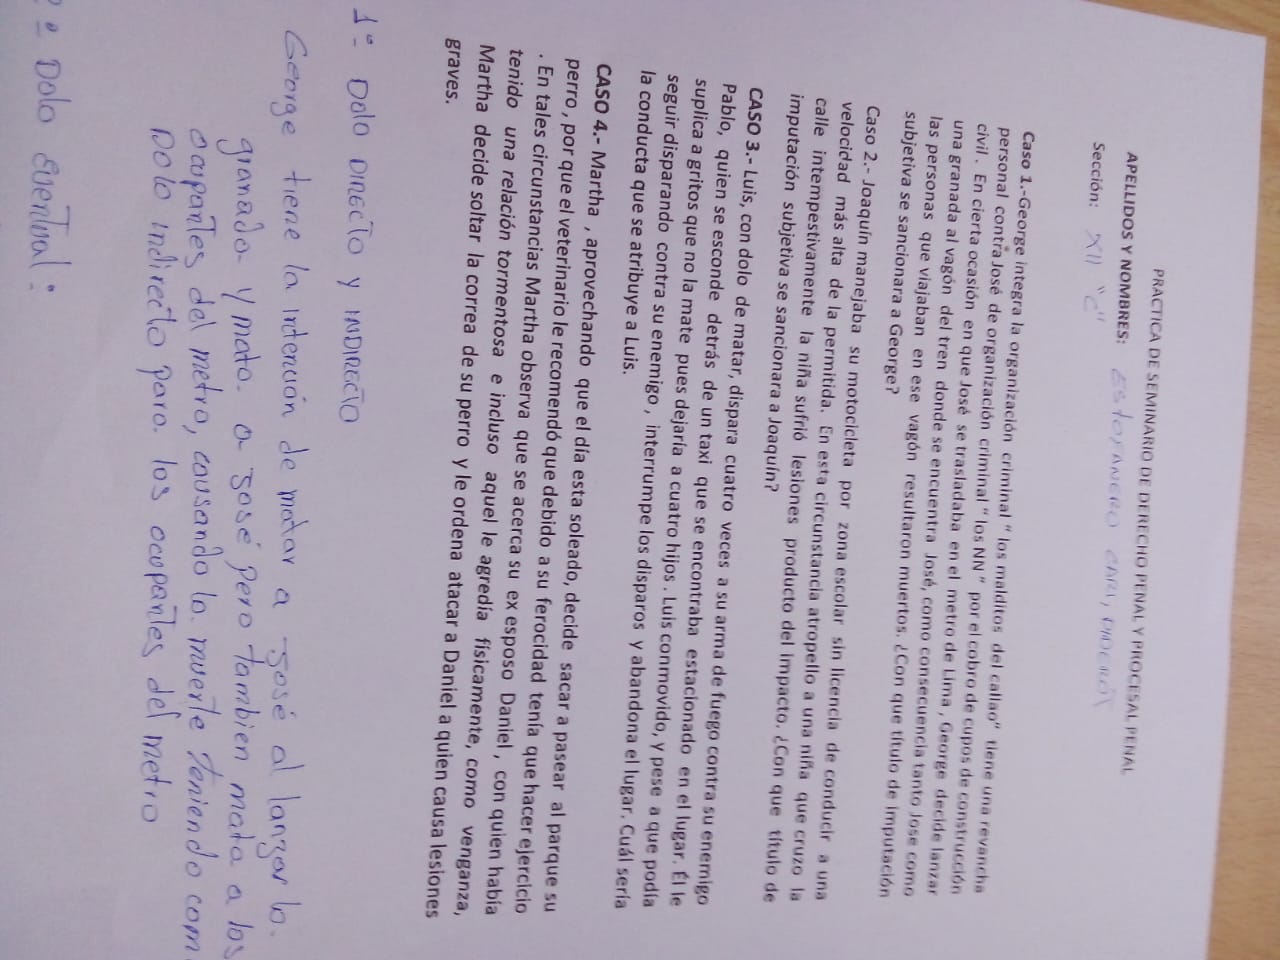 PRACTICA DE SEMINARIO DE DERECHO PENAL Y PROCESAL PENAL
APELLIDOS Y NOMBRES: ESTOFANERO CARI, DIDEROT
Sección: XII "C"
Caso 1.-George integra la organización criminal " los malditos del callao" tiene una revancha
personal contra José de organización criminal " los NN " por el cobro de cupos de construcción
civil . En cierta ocasión en que José se trasladaba en el metro de Lima , George decide lanzar
una granada al vagón del tren donde se encuentra José, como consecuencia tanto Jose como
las personas que viajaban en ese vagón resultaron muertos. ¿Con que título de imputación
subjetiva se sancionara a George?
Caso 2.- Joaquín manejaba su motocicleta por zona escolar sin licencia de conducir a una
velocidad más alta de la permitida. En esta circunstancia atropello a una niña que cruzo la
calle intempestivamente la niña sufrió lesiones producto del impacto. ¿Con que título de
imputación subjetiva se sancionara a Joaquín?
CASO 3.- Luis, con dolo de matar, dispara cuatro veces a su arma de fuego contra su enemigo
Pablo, quien se esconde detrás de un taxi que se encontraba estacionado en el lugar. Él le
suplica a gritos que no la mate pues dejaría a cuatro hijos . Luis conmovido, y pese a que podía
seguir disparando contra su enemigo , interrumpe los disparos y abandona el lugar. Cuál sería
la conducta que se atribuye a Luis.
CASO 4.- Martha , aprovechando que el día esta soleado, decide sacar a pasear al parque su
perro , por que el veterinario le recomendó que debido a su ferocidad tenía que hacer ejercicio
. En tales circunstancias Martha observa que se acerca su ex esposo Daniel , con quien había
tenido una relación tormentosa e incluso aquel le agredía físicamente, como venganza,
Martha decide soltar la correa de su perro y le ordena atacar a Daniel a quien causa lesiones
graves.
1º Dolo DIRECTO y INDIRECTO
George tiene la intención de matar a José al lanzar la
granada y mato a José pero tambien mata a los
ocupantes del metro, causando la muerte teniendo com
Dolo indirecto para los ocupantes del metro
º Dolo Eventual :